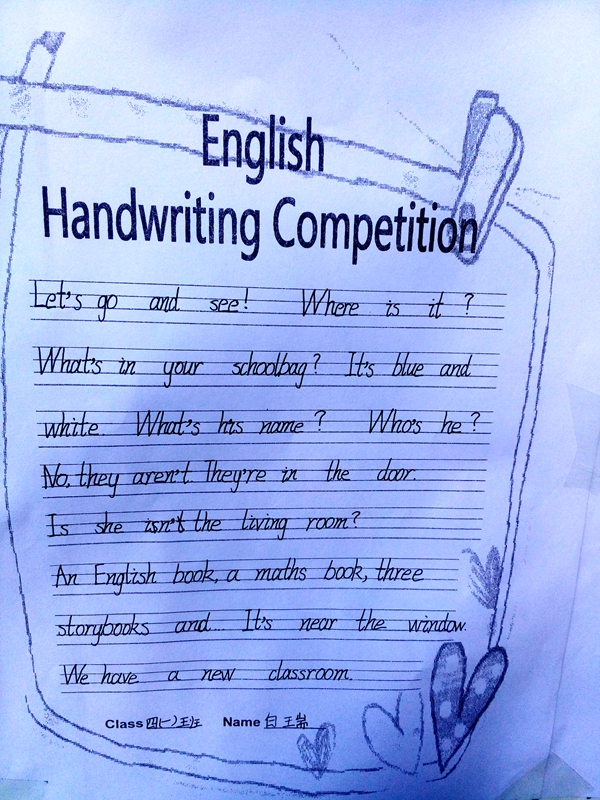 English
Handwriting Competition
Let's go and see! Where is it?
What's in your schoolbag? It's blue and
white. What's his name? Who's he?
No, they aren't. They're in the door.
Is she isn't the living room?
An English book, a maths book, three
storybooks and... It's near the window.
We have a new classroom.
Class 四(一)班 Name 白王